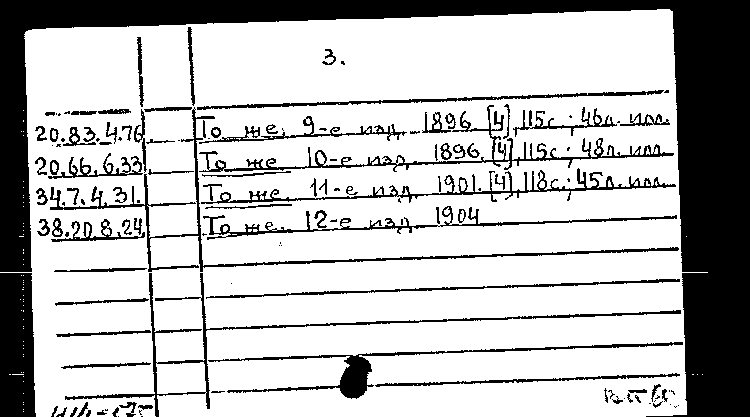 3.
20.83.4.76 То же. 9-е изд. 1896. [4], 115с.; 46л. илл.
20.66.6.33 То же 10-е изд. 1896. [4], 115с.; 48л. илл.
34.7.4.31. То же. 11-е изд. 1901. [4], 118с.; 45л. илл.
38.20.8.24 То же. 12-е изд. 1904